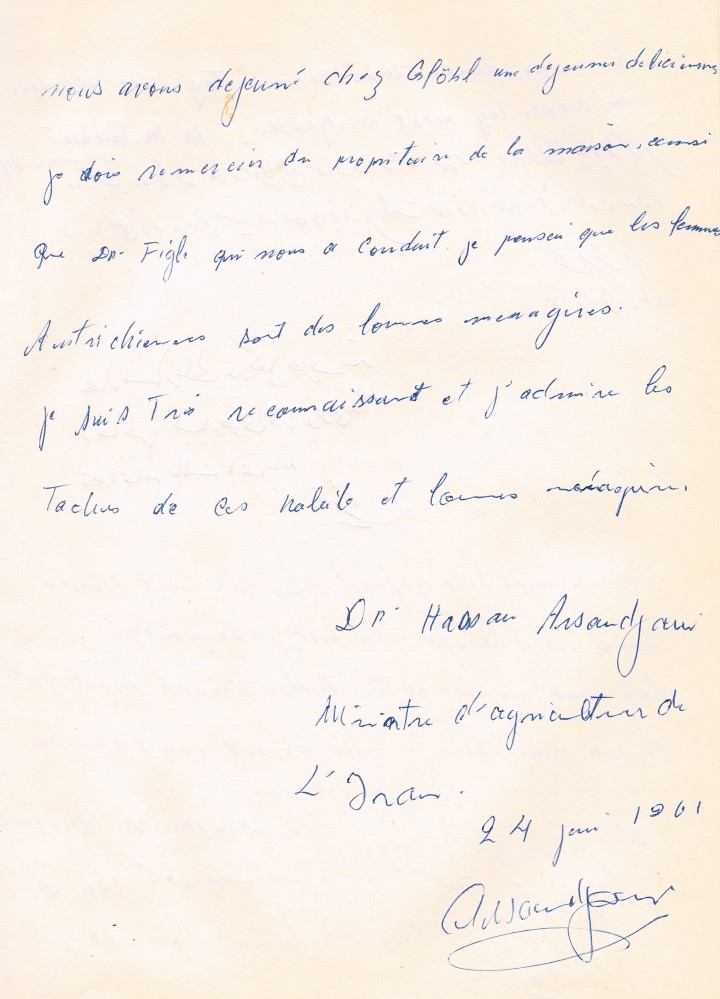 nous avons dejeuné chez Glößl une dejeuner delicieuses
je dois remercier du propritaire de la maison, ainsi
que Dr Figl qui nous a conduit je pensai que les femmes
Autrichiennes sont des bonnes menagères.
je suis Très reconnaissant et j'admire les
Taches de ces habile et bonnes ménagère.
Dr Hassan Arsandjani
Ministre d'agriculture de
L'Iran.
24 juin 1961
Arsandjani